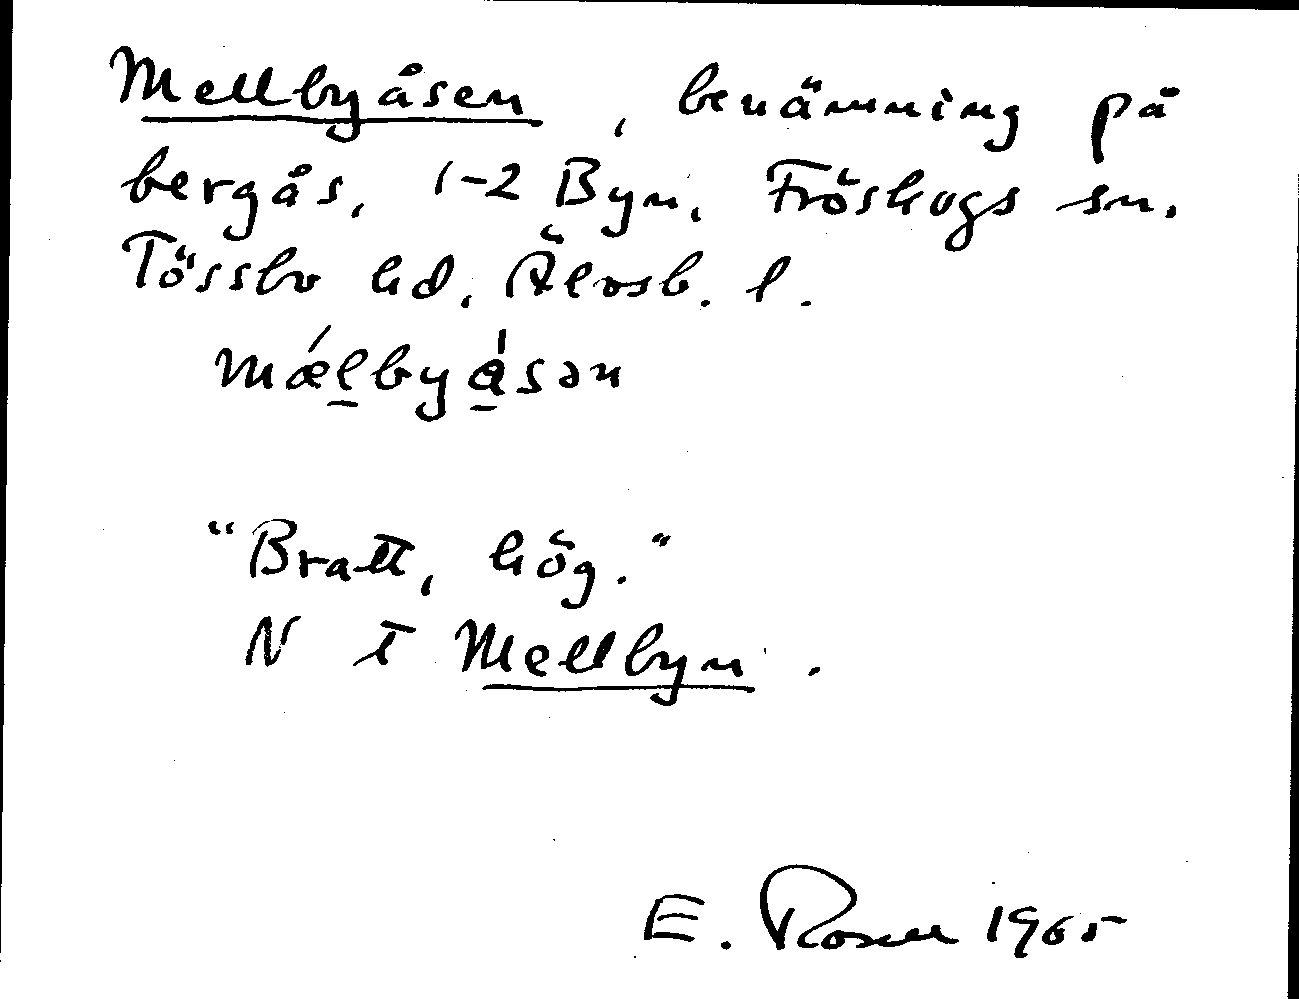 Mellbyåsen, benämning på
bergås, 1-2 Byn, Fröskogs sn.
Tössbo hd, Älvsb. l.
mǽlbyåsən
"Bratt, hög."
N t Mellbyn.
E. Rosell 1965